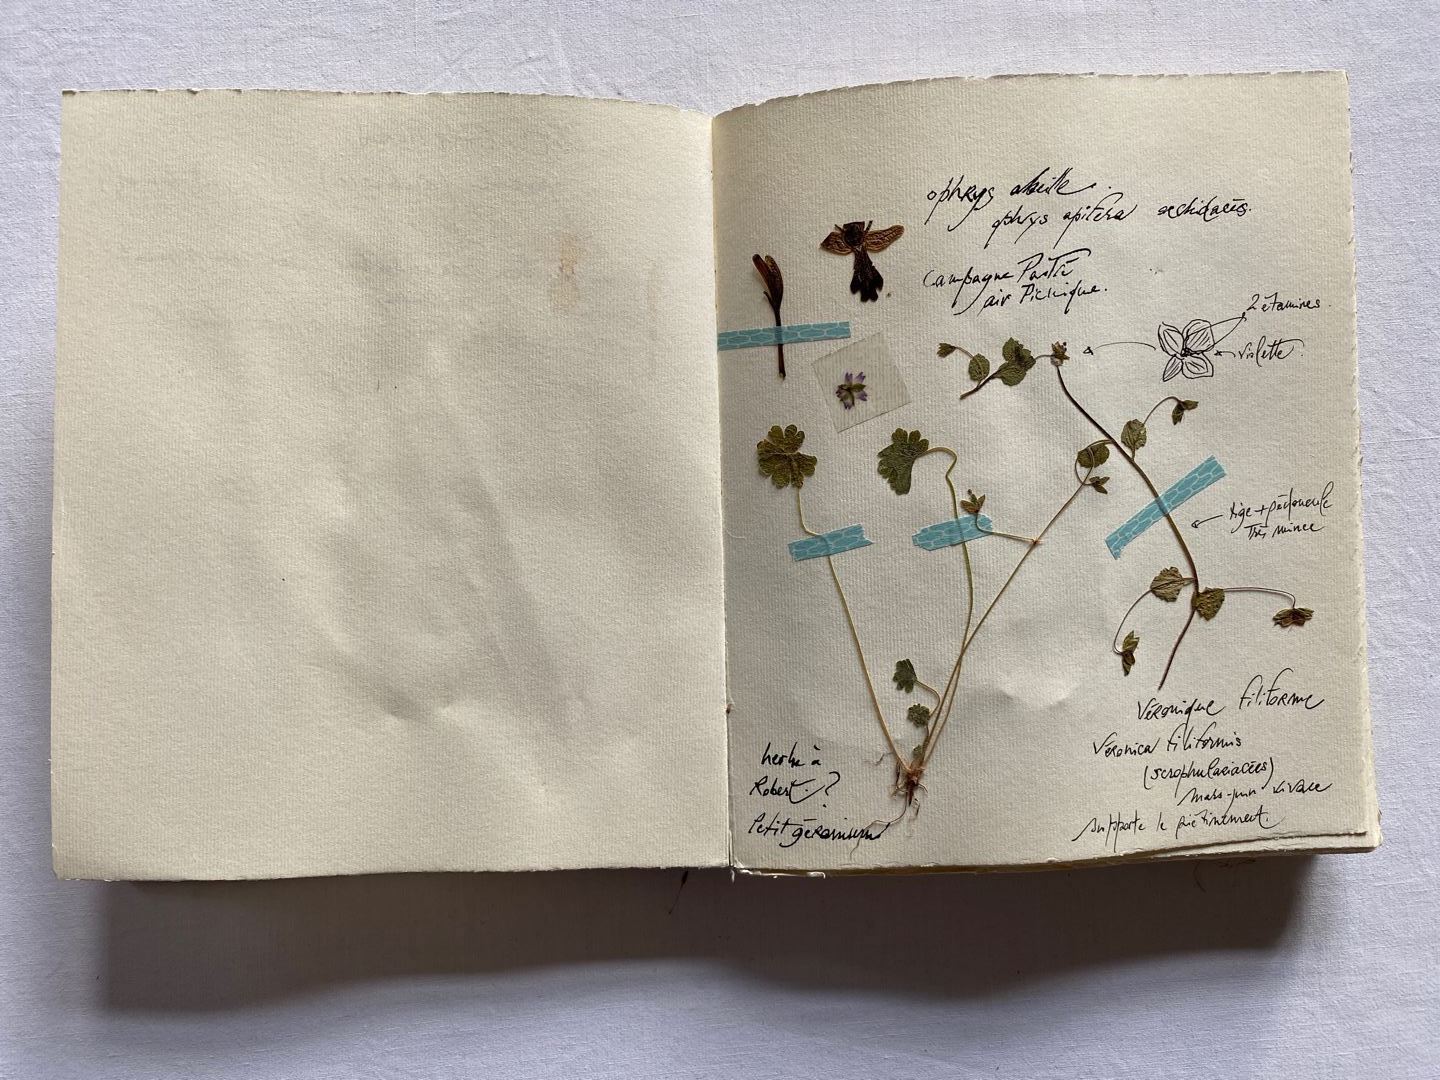 ophrys abeille.
ophrys apifera orchidacées.
Campagne Pastré
air Picnique.
2 étamines.
violette.
tige + pédoncule
très mince
Véronique filiforme
Véronica filiformis
(scrophulariacées)
mars-juin vivace
supporte le piétinement.
herbe à
Robert.?
Petit géranium